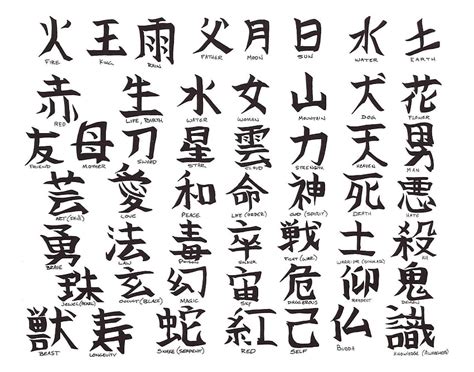 火 王 雨 父 月 日 水 土
FIRE KING RAIN FATHER MOON SUN WATER EARTH
赤 生 水 女 山 犬 花
RED LIFE, BIRTH WATER WOMAN MOUNTAIN DOG FLOWER
友 母 刀 星 雲 力 天 男
FRIEND MOTHER SWORD STAR CLOUD STRENGTH HEAVEN MAN
芸 愛 和 命 神 死 悪
ART (SKILL) LOVE PEACE LIFE (ORDER) GOD (SPIRIT) DEATH HATE
勇 法 毒 卒 戦 士 殺
BRAVE LAW POISON SOLDIER FIGHT (WAR) WARRIOR KILL
珠 玄 幻 宙 危 仰 鬼
JEWEL (PEARL) OCCULT (BLACK) MAGIC SKY DANGEROUS RESPECT DEMON
獣 寿 蛇 紅 己 仏 識
BEAST LONGEVITY SNAKE (SERPENT) RED SELF BUDDHA KNOWLEDGE